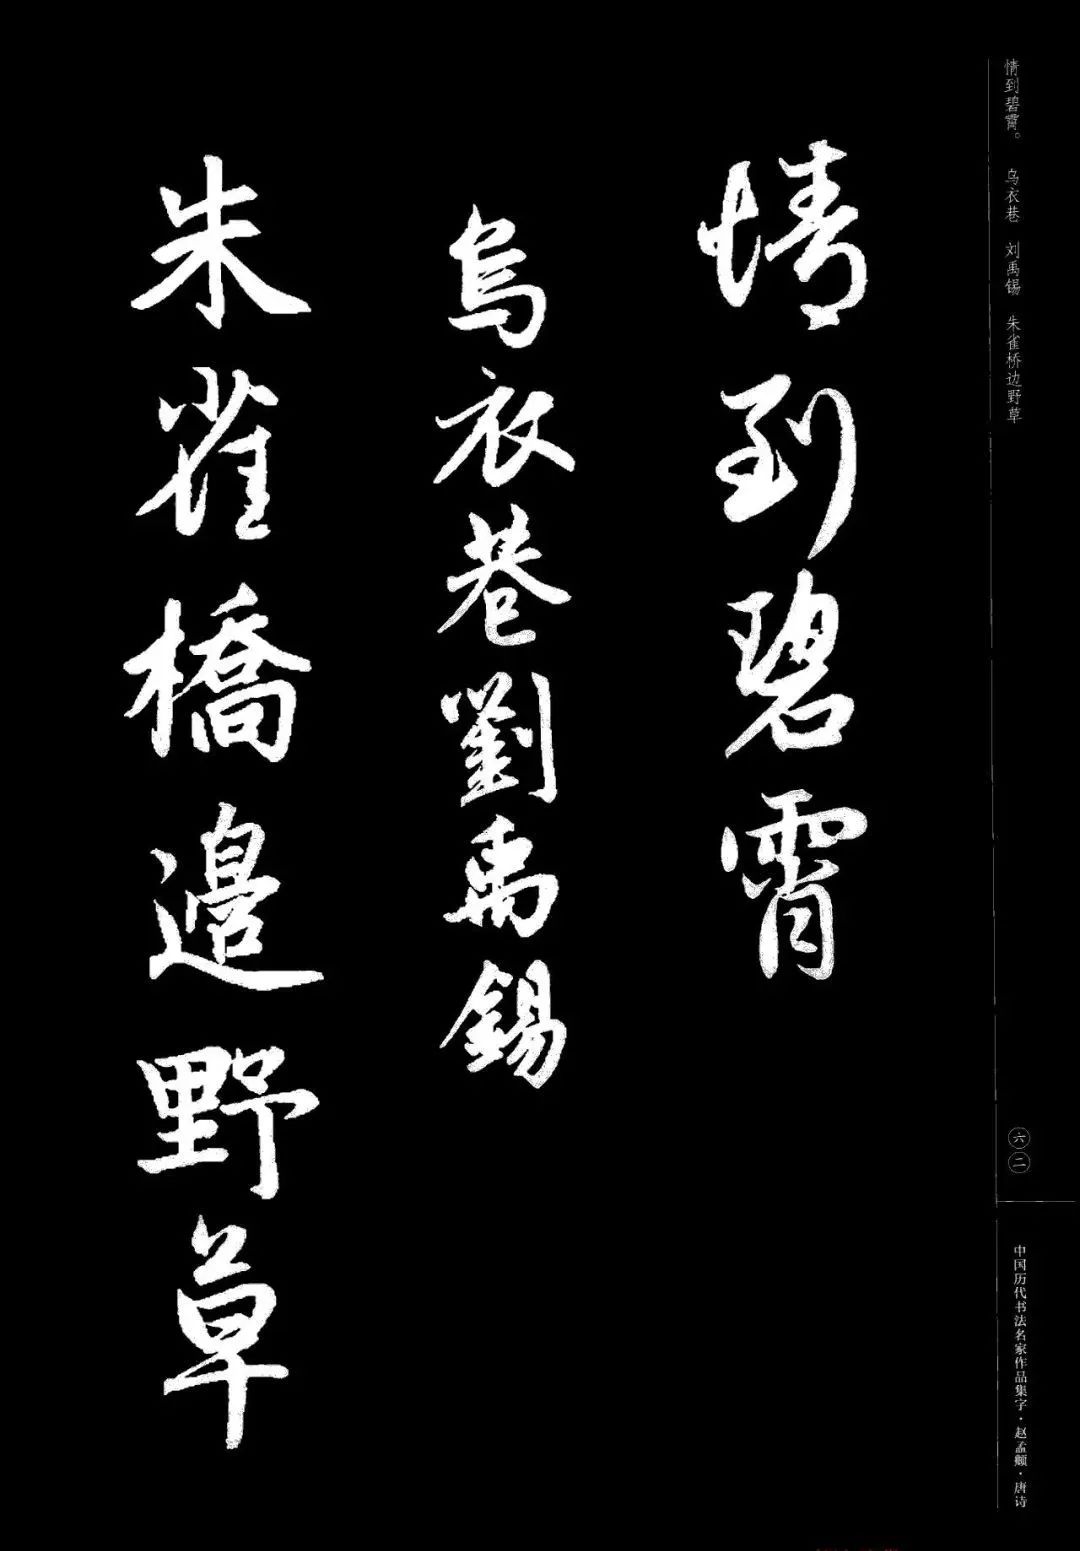 情到碧霄。 乌衣巷 刘禹锡 朱雀桥边野草
情到碧霄
烏衣巷劉禹錫
朱雀橋邊野草
六二
中国历代书法名家作品集字·赵孟頫·唐诗